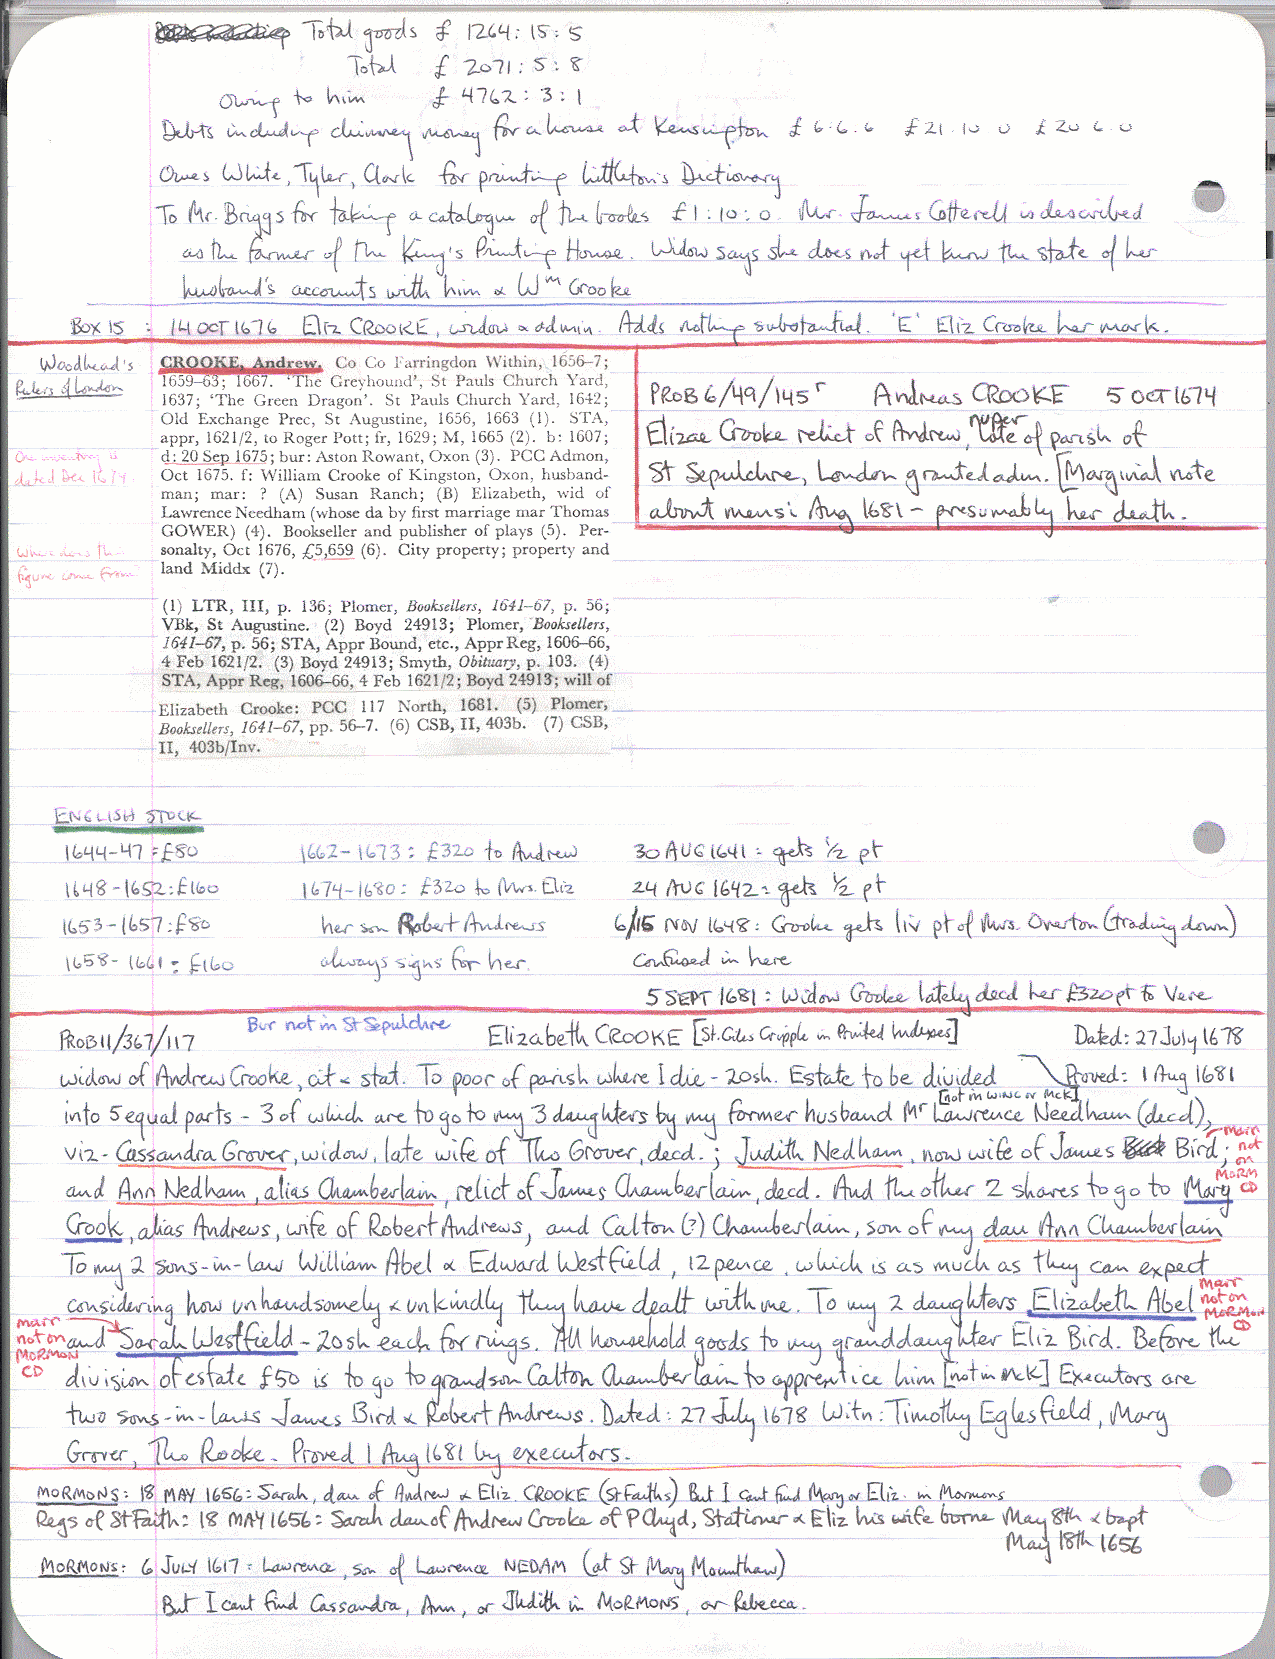 Total goods £ 1264:15:5
Total £ 2071:5:8
Owing to him £ 4762:3:1
Debts including chimney money for a house at Kensington £6.6.6 £21.10 0 £20 6.0
Owes White, Tyler, Clark for printing Littleton's Dictionary
To Mr. Briggs for taking a catalogue of the books £1:10:0. Mr. James Cotterell is described
as the farmer of the King's Printing House. Widow says she does not yet know the state of her
husband's accounts with him & Wm Crooke
BOX 15 : 14 OCT 1676 Eliz CROOKE, widow & admin. Adds nothing substantial. 'E' Eliz Crooke her mark.
Woodhead's
Rulers of London
One inventory is
dated Dec 1674
Where does this
figure come from
CROOKE, Andrew. Co Co Farringdon Within, 1656–7;
1659–63; 1667. 'The Greyhound', St Pauls Church Yard,
1637; 'The Green Dragon'. St Pauls Church Yard, 1642;
Old Exchange Prec, St Augustine, 1656, 1663 (1). STA,
appr, 1621/2, to Roger Pott; fr, 1629; M, 1665 (2). b: 1607;
d: 20 Sep 1675; bur: Aston Rowant, Oxon (3). PCC Admon,
Oct 1675. f: William Crooke of Kingston, Oxon, husband-
man; mar: ? (A) Susan Ranch; (B) Elizabeth, wid of
Lawrence Needham (whose da by first marriage mar Thomas
GOWER) (4). Bookseller and publisher of plays (5). Per-
sonalty, Oct 1676, £5,659 (6). City property; property and
land Middx (7).
(1) LTR, III, p. 136; Plomer, Booksellers, 1641–67, p. 56;
VBk, St Augustine. (2) Boyd 24913; Plomer, Booksellers,
1641–67, p. 56; STA, Appr Bound, etc., Appr Reg, 1606–66,
4 Feb 1621/2. (3) Boyd 24913; Smyth, Obituary, p. 103. (4)
STA, Appr Reg, 1606–66, 4 Feb 1621/2; Boyd 24913; will of
Elizabeth Crooke: PCC 117 North, 1681. (5) Plomer,
Booksellers, 1641–67, pp. 56–7. (6) CSB, II, 403b. (7) CSB,
II, 403b/Inv.
PROB 6/49/145r Andreas CROOKE 5 OCT 1674
nuper
Elizae Crooke relict of Andrew, late of parish of
St Sepulchre, London granted adm. [Marginal note
about mensi Aug 1681 – presumably her death.
ENGLISH STOCK
1644-47 : £80 1662-1673 : £320 to Andrew 30 AUG 1641 : gets ½ pt
1648-1652 : £160 1674-1680 : £320 to Mrs. Eliz 24 AUG 1642 : gets ½ pt
1653-1657 : £80 her son Robert Andrews 6/15 NOV 1648 : Crooke gets liv pt of Mrs. Overton (trading down)
1658-1661 : £160 always signs for her. Confused in here
5 SEPT 1681 : Widow Crooke lately decd her £320 pt to Vere
PROB 11/367/117 Bur not in St Sepulchre Elizabeth CROOKE [St. Giles Cripple in Printed Indexes] Dated: 27 July 1678
widow of Andrew Crooke, cit & stat. To poor of parish where I die – 20sh. Estate to be divided Proved: 1 Aug 1681
[not in WINC or McK]
into 5 equal parts – 3 of which are to go to my 3 daughters by my former husband Mr Lawrence Needham (decd),
viz – Cassandra Grover, widow, late wife of Tho Grover, decd.; Judith Nedham, now wife of James Bird;
marr not on MORM CD
and Ann Nedham, alias Chamberlain, relict of James Chamberlain, decd. And the other 2 shares to go to Mary
Crook, alias Andrews, wife of Robert Andrews, and Calton (?) Chamberlain, son of my dau Ann Chamberlain
To my 2 sons-in-law William Abel & Edward Westfield, 12 pence, which is as much as they can expect
considering how unhandsomely & unkindly they have dealt with me. To my 2 daughters Elizabeth Abel
marr not on MORMON CD
marr not on MORMON CD
and Sarah Westfield – 20sh each for rings. All household goods to my granddaughter Eliz Bird. Before the
division of estate £50 is to go to grandson Calton Chamberlain to apprentice him [not in McK] Executors are
two sons-in-laws James Bird & Robert Andrews. Dated: 27 July 1678 Witn: Timothy Eglesfield, Mary
Grover, Tho Rooke. Proved 1 Aug 1681 by executors.
MORMONS: 18 MAY 1656: Sarah, dau of Andrew & Eliz CROOKE (St Faiths) But I cant find Mary or Eliz. in Mormons
Regs of St Faith: 18 MAY 1656: Sarah dau of Andrew Crooke of P Chyd, Stationer & Eliz his wife borne May 8th & bapt
May 18th 1656
MORMONS: 6 JULY 1617 : Lawrence, son of Lawrence NEDAM (at St Mary Mounthaw)
But I cant find Cassandra, Ann, or Judith in MORMONS, or Rebecca.